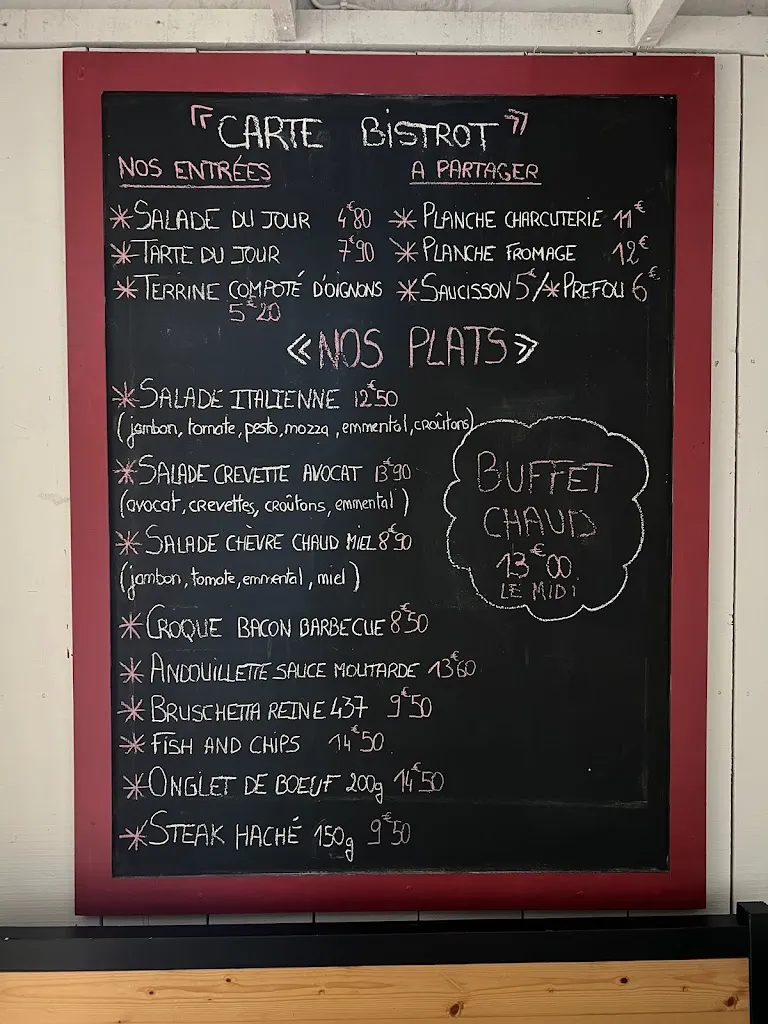 « CARTE BISTROT »
NOS ENTRÉES
* SALADE DU JOUR 4€80
* TARTE DU JOUR 7€90
* TERRINE COMPOTÉ D'OIGNONS
5€20
A PARTAGER
* PLANCHE CHARCUTERIE 11€
* PLANCHE FROMAGE 12€
* SAUCISSON 5€/* PREFOU 6€
« NOS PLATS »
* SALADE ITALIENNE 12€50
(jambon, tomate, pesto, mozza, emmental, croûtons)
* SALADE CREVETTE AVOCAT 13€90
(avocat, crevettes, croûtons, emmental)
* SALADE CHÈVRE CHAUD MIEL 8€90
(jambon, tomate, emmental, miel)
* CROQUE BACON BARBECUE 8€50
* ANDOUILLETTE SAUCE MOUTARDE 13€60
* BRUSCHETTA REINE 437 9€50
* FISH AND CHIPS 14€50
* ONGLET DE BOEUF 200g 14€50
* STEAK HACHÉ 150g 9€50
BUFFET
CHAUD
13€00
LE MIDI